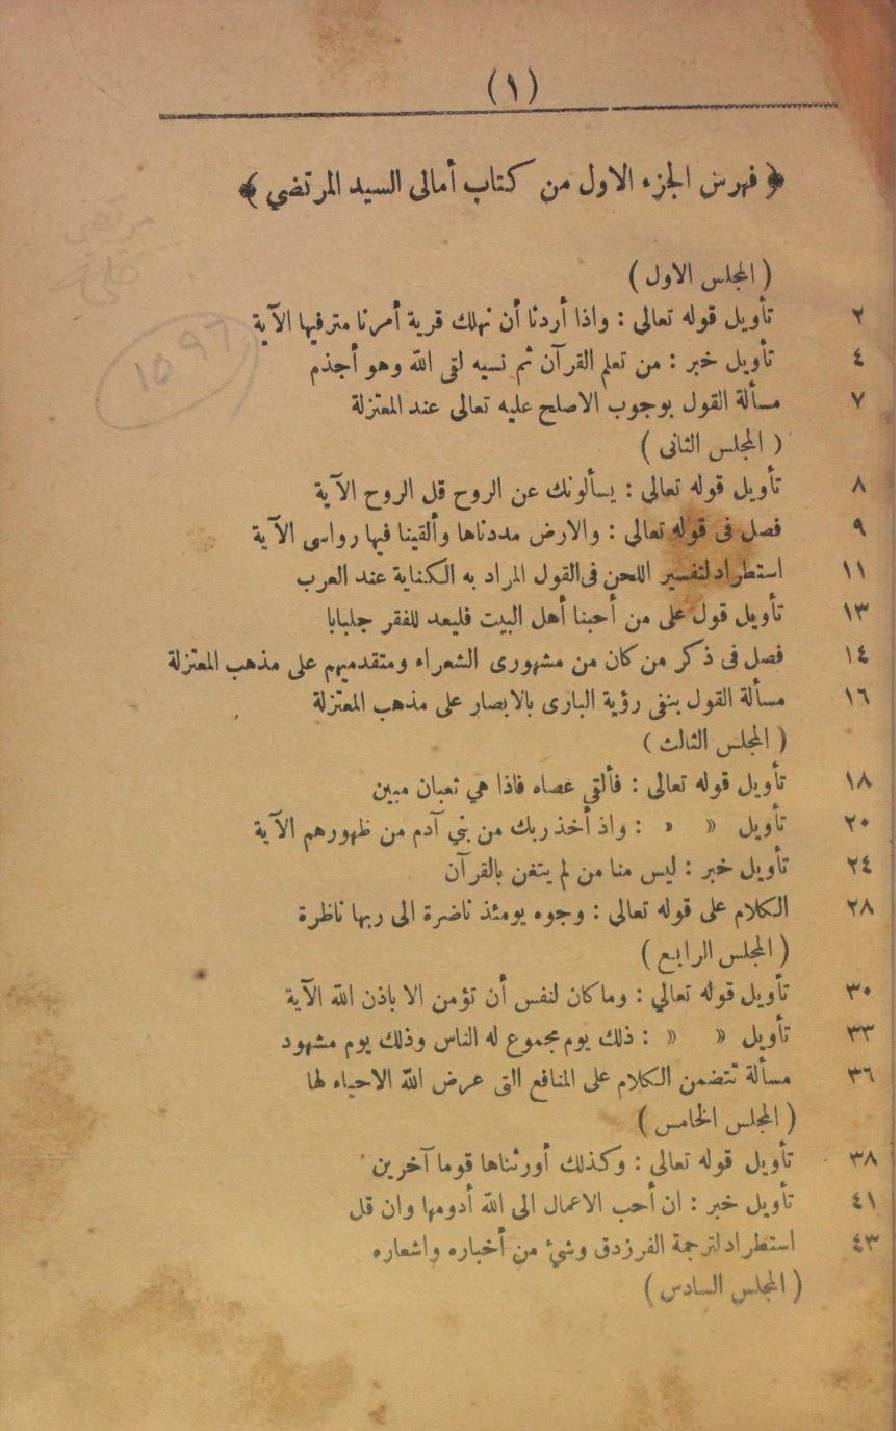 (١)
﴿ فهرس الجزء الاول من كتاب أمالى السيد المرتضي ﴾
مرتضى
١٥٩٦
( المجلس الاول )
٢ تأويل قوله تعالى : واذا أردنا أن نهلك قرية أمرنا مترفيها الآية
٤ تأويل خبر : من تعلم القرآن ثم نسيه لقى الله وهو أجذم
٧ مسألة القول بوجوب الاصلح عليه تعالى عند المعتزلة
( المجلس الثانى )
٨ تأويل قوله تعالى : يسألونك عن الروح قل الروح الآية
٩ فصل فى قوله تعالى : والارض مددناها وألقينا فيها رواسى الآية
١١ استطراد لتفسير اللحن فى القول المراد به الكناية عند العرب
١٣ تأويل قول على من أحبنا أهل البيت فليعد للفقر جلبابا
١٤ فصل فى ذكر من كان من مشهورى الشعراء ومتقدميهم على مذهب المعتزلة
١٦ مسألة القول بنفى رؤية البارى بالابصار على مذهب المعتزلة
( المجلس الثالث )
١٨ تأويل قوله تعالى : فألقي عصاه فاذا هي ثعبان مبين
٢٠ تأويل « « : واذ أخذ ربك من بني آدم من ظهورهم الآية
٢٤ تأويل خبر : ليس منا من لم يتغن بالقرآن
٢٨ الكلام على قوله تعالى : وجوه يومئذ ناضرة الى ربها ناظرة
( المجلس الرابع )
٣٠ تأويل قوله تعالي : وما كان لنفس أن تؤمن الا باذن الله الآية
٣٣ تأويل « « : ذلك يوم مجموع له الناس وذلك يوم مشهود
٣٦ مسألة تتضمن الكلام على المنافع التى عرض الله الاحياء لها
( المجلس الخامس )
٣٨ تأويل قوله تعالى : وكذلك أورثناها قوما آخرين
٤١ تأويل خبر : ان أحب الاعمال الى الله أدومها وان قل
٤٣ استطراد لترجمة الفرزدق وشئ من أخباره واشعاره
( المجلس السادس )